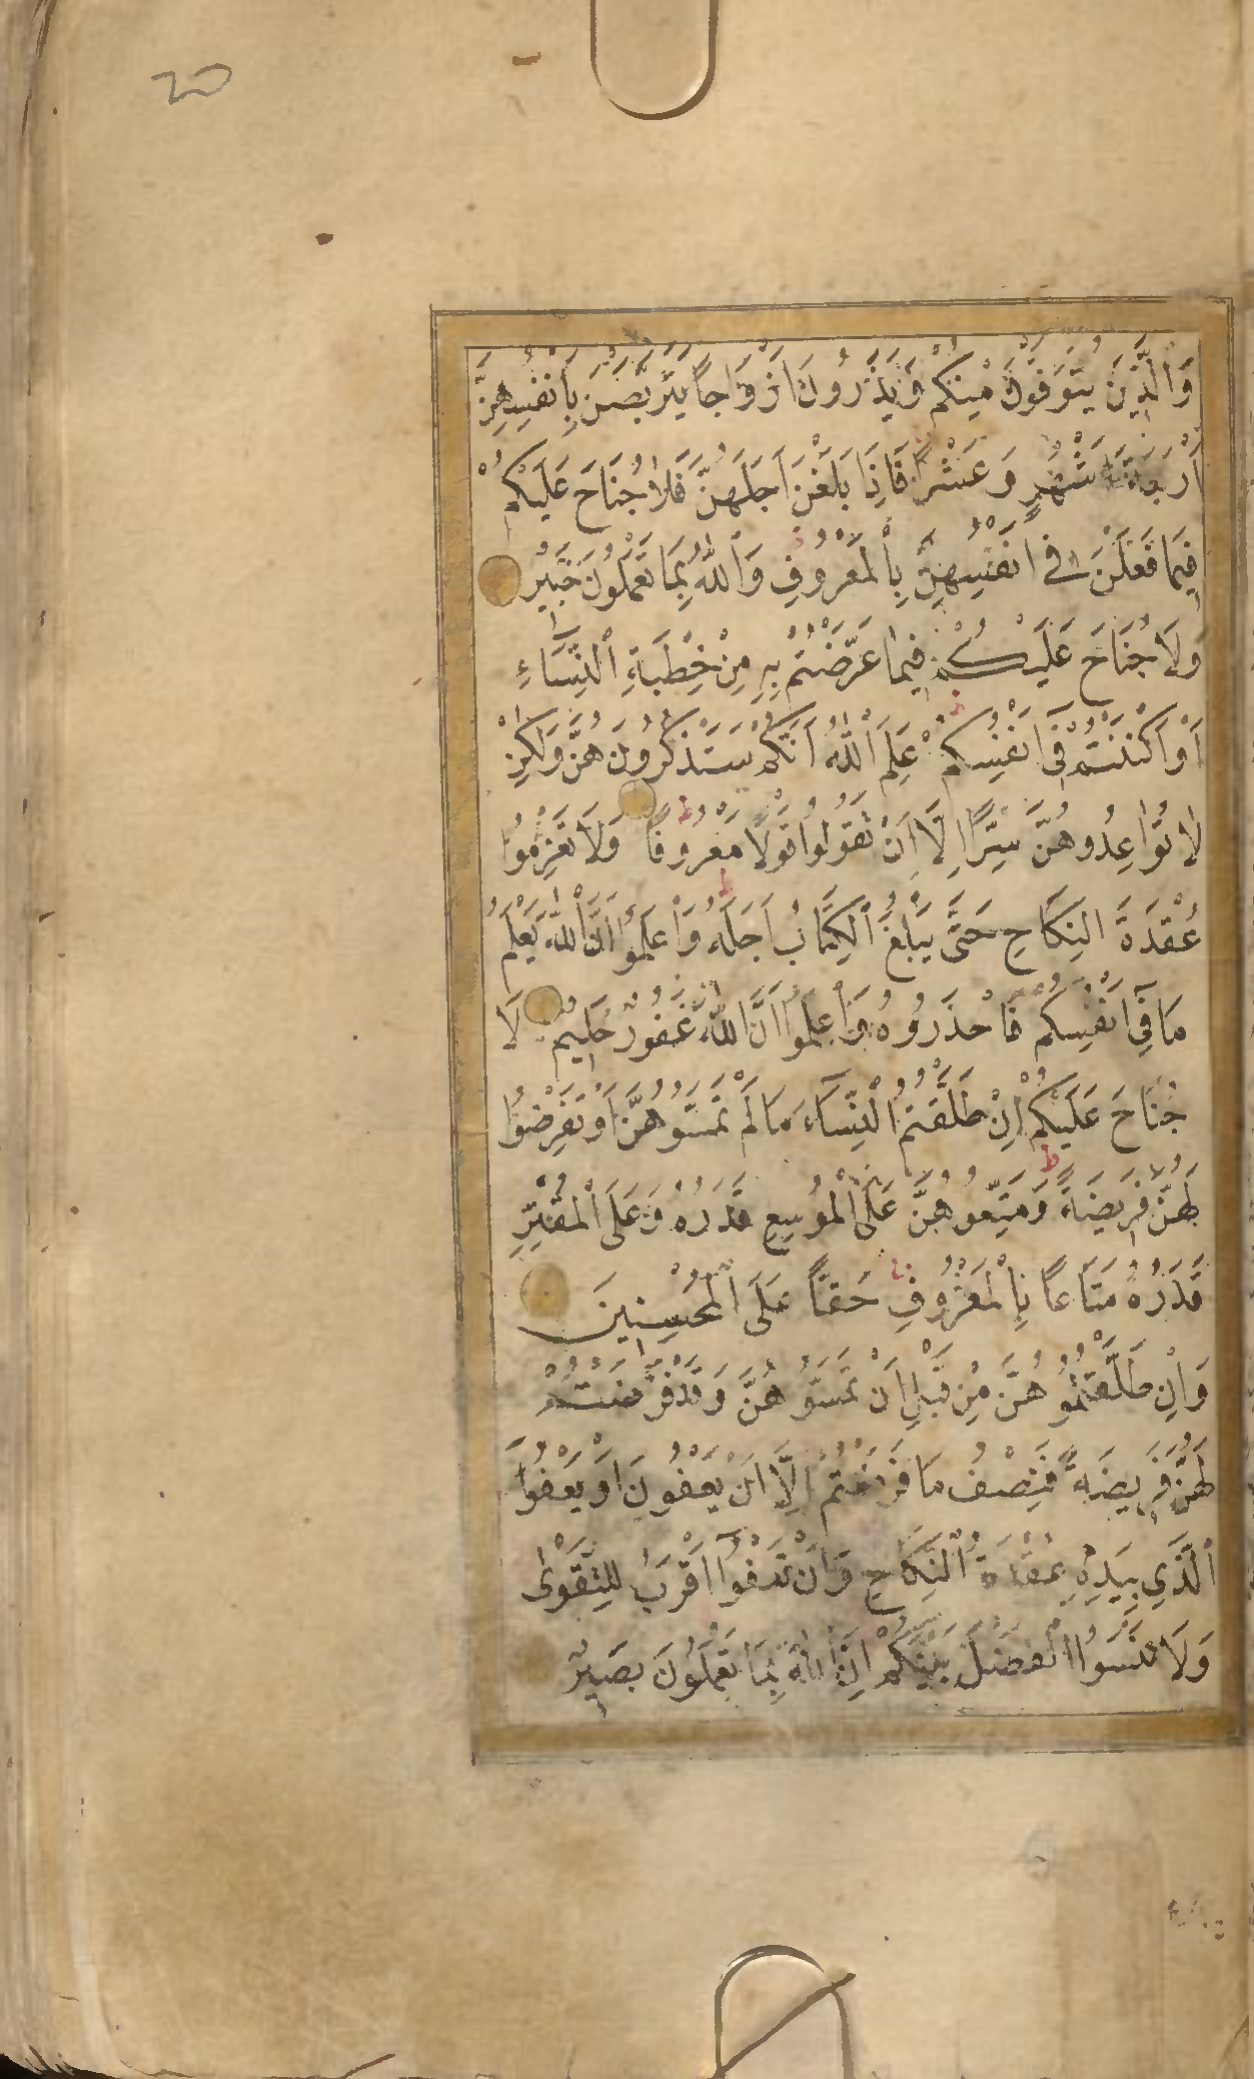 20
وَالَّذِينَ يُتَوَفَّوْنَ مِنْكُمْ وَيَذَرُونَ اَزْوَاجًا يَتَرَبَّصْنَ بِاَنْفُسِهِنَّ
اَرْبَعَةَ اَشْهُرٍ وَعَشْرًا فَاِذَا بَلَغْنَ اَجَلَهُنَّ فَلَا جُنَاحَ عَلَيْكُمْ
فِيمَا فَعَلْنَ فِي اَنْفُسِهِنَّ بِالْمَعْرُوفِ وَاللّٰهُ بِمَا تَعْمَلُونَ خَبِيرٌ
وَلَا جُنَاحَ عَلَيْكُمْ فِيمَا عَرَّضْتُمْ بِهِ مِنْ خِطْبَةِ النِّسَاءِ
اَوْ اَكْنَنْتُمْ فِي اَنْفُسِكُمْ عَلِمَ اللّٰهُ اَنَّكُمْ سَتَذْكُرُونَهُنَّ وَلٰكِنْ
لَا تُوَاعِدُوهُنَّ سِرًّا اِلَّا اَنْ تَقُولُوا قَوْلًا مَعْرُوفًا وَلَا تَعْزِمُوا
عُقْدَةَ النِّكَاحِ حَتَّى يَبْلُغَ الْكِتَابُ اَجَلَهُ وَاعْلَمُوا اَنَّ اللّٰهَ يَعْلَمُ
مَا فِي اَنْفُسِكُمْ فَاحْذَرُوهُ وَاعْلَمُوا اَنَّ اللّٰهَ غَفُورٌ حَلِيمٌ لَا
جُنَاحَ عَلَيْكُمْ اِنْ طَلَّقْتُمُ النِّسَاءَ مَا لَمْ تَمَسُّوهُنَّ اَوْ تَفْرِضُوا
لَهُنَّ فَرِيضَةً وَمَتِّعُوهُنَّ عَلَى الْمُوسِعِ قَدَرُهُ وَعَلَى الْمُقْتِرِ
قَدَرُهُ مَتَاعًا بِالْمَعْرُوفِ حَقًّا عَلَى الْمُحْسِنِينَ
وَاِنْ طَلَّقْتُمُوهُنَّ مِنْ قَبْلِ اَنْ تَمَسُّوهُنَّ وَقَدْ فَرَضْتُمْ
لَهُنَّ فَرِيضَةً فَنِصْفُ مَا فَرَضْتُمْ اِلَّا اَنْ يَعْفُونَ اَوْ يَعْفُوَا
الَّذِي بِيَدِهِ عُقْدَةُ النِّكَاحِ وَاَنْ تَعْفُوا اَقْرَبُ لِلتَّقْوٰى
وَلَا تَنْسَوُا الْفَضْلَ بَيْنَكُمْ اِنَّ اللّٰهَ بِمَا تَعْمَلُونَ بَصِيرٌ